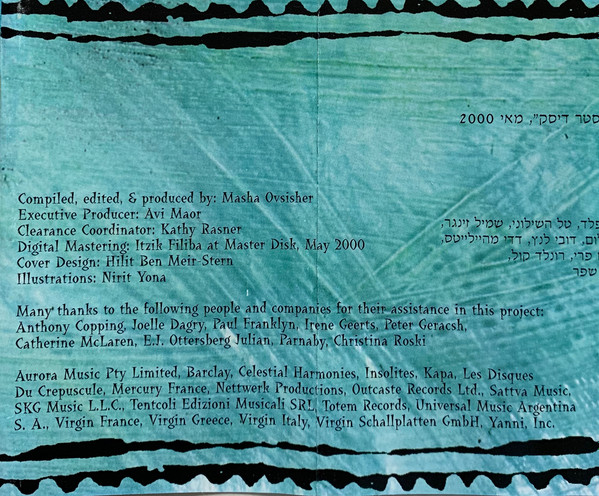 סטר דיסק", מאי 2000
Compiled, edited, & produced by: Masha Ovsisher
Executive Producer: Avi Maor
Clearance Coordinator: Kathy Rasner
Digital Mastering: Itzik Filiba at Master Disk, May 2000
Cover Design: Hilit Ben Meir-Stern
Illustrations: Nirit Yona
פלד, טל השילוני, שמיל זינגר,
דובי לנץ, דדי מהיילייטס,
פרי, רונלד קול,
שפר
Many thanks to the following people and companies for their assistance in this project:
Anthony Copping, Joelle Dagry, Paul Franklyn, Irene Geerts, Peter Geracsh,
Catherine McLaren, E.J. Ottersberg Julian, Parnaby, Christina Roski
Aurora Music Pty Limited, Barclay, Celestial Harmonies, Insolites, Kapa, Les Disques
Du Crepuscule, Mercury France, Nettwerk Productions, Outcaste Records Ltd., Sattva Music,
SKG Music L.L.C., Tentcoli Edizioni Musicali SRL, Totem Records, Universal Music Argentina
S. A., Virgin France, Virgin Greece, Virgin Italy, Virgin Schallplatten GmbH, Yanni, Inc.